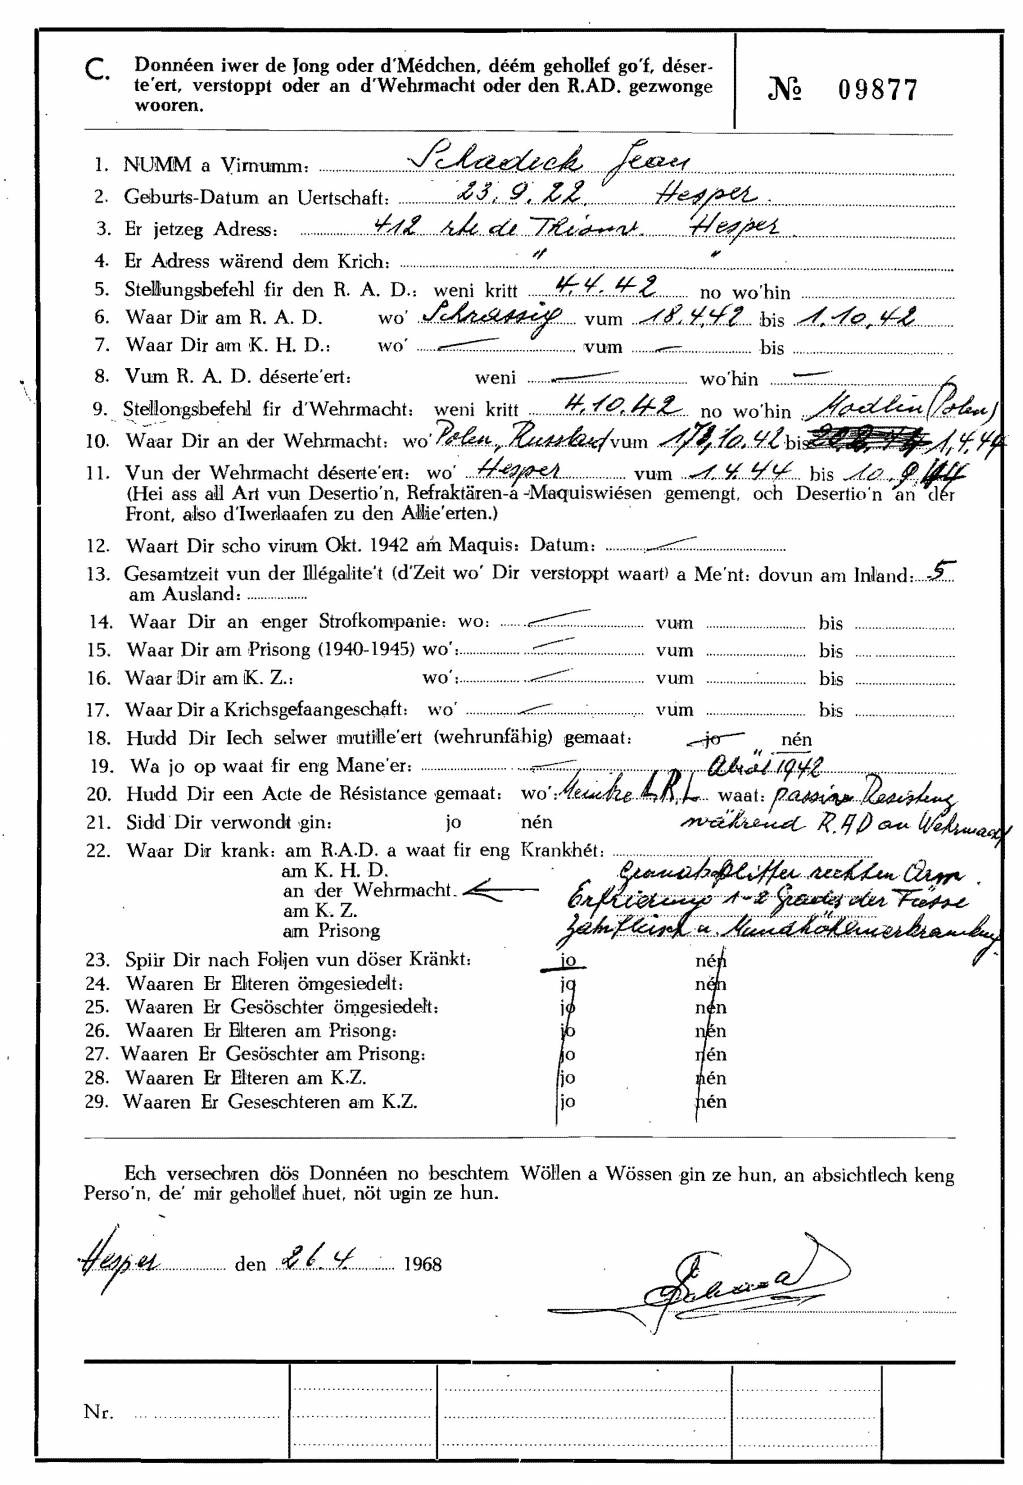 C. Donnéen iwer de Jong oder d'Médchen, déém gehollef go'f, déser-
te'ert, verstoppt oder an d'Wehrmacht oder den R.AD. gezwonge
wooren.
№ 09877
1. NUMM a Virnumm: Schadeck Jean
2. Geburts-Datum an Uertschaft: 23.9.22 Hesper.
3. Er jetzeg Adress: 412 rte de Thionv. Hesper.
4. Er Adress wärend dem Krich: " "
5. Stellungsbefehl fir den R. A. D.: weni kritt 4.4.42 no wo'hin
6. Waar Dir am R. A. D. wo' Schrassig vum 18.4.42 bis 1.10.42
7. Waar Dir am K. H. D.: wo' — vum — bis
8. Vum R. A. D. déserte'ert: weni — wo'hin —
9. Stellongsbefehl fir d'Wehrmacht: weni kritt 4.10.42 no wo'hin Modlin (Polen)
10. Waar Dir an der Wehrmacht: wo' Polen, Russland vum 10.42 bis 1.4.44
11. Vun der Wehrmacht déserte'ert: wo' Hesper vum 1.4.44 bis 10.9.44
(Hei ass all Art vun Desertio'n, Refraktären-a -Maquiswiésen gemengt, och Desertio'n an der
Front, also d'Iwerlaafen zu den Allie'erten.)
12. Waart Dir scho virum Okt. 1942 am Maquis: Datum: —
13. Gesamtzeit vun der Illégalite't (d'Zeit wo' Dir verstoppt waart) a Me'nt: dovun am Inland: 5
am Ausland:
14. Waar Dir an enger Strofkompanie: wo: — vum bis
15. Waar Dir am Prisong (1940-1945) wo': — vum bis
16. Waar Dir am K. Z.: wo': — vum bis
17. Waar Dir a Krichsgefaangeschaft: wo' — vum bis
18. Hudd Dir Iech selwer mutille'ert (wehrunfähig) gemaat: jo nén
19. Wa jo op waat fir eng Mane'er: — 1942
20. Hudd Dir een Acte de Résistance gemaat: wo': L.R.L. waat: passive Resistenz
21. Sidd Dir verwondt gin: jo nén während R.A.D an Wehrmacht
22. Waar Dir krank: am R.A.D. a waat fir eng Krankhét:
am K. H. D. Granatsplitter rechten Arm.
an der Wehrmacht. Erfrierung 1-2 Grades der Füsse
am K. Z.
am Prisong Zahnfleisch u. Mundhöhlenerkrankung
23. Spiir Dir nach Foljen vun döser Kränkt: jo nén
24. Waaren Er Elteren ömgesiedelt: jo nén
25. Waaren Er Gesöschter ömgesiedelt: jo nén
26. Waaren Er Elteren am Prisong: jo nén
27. Waaren Er Gesöschter am Prisong: jo nén
28. Waaren Er Elteren am K.Z. jo nén
29. Waaren Er Geseschteren am K.Z. jo nén
Ech versechren dös Donnéen no beschtem Wöllen a Wössen gin ze hun, an absichtlech keng
Perso'n, de' mir gehollef huet, nöt ugin ze hun.
Hesper den 26.4. 1968
Nr.